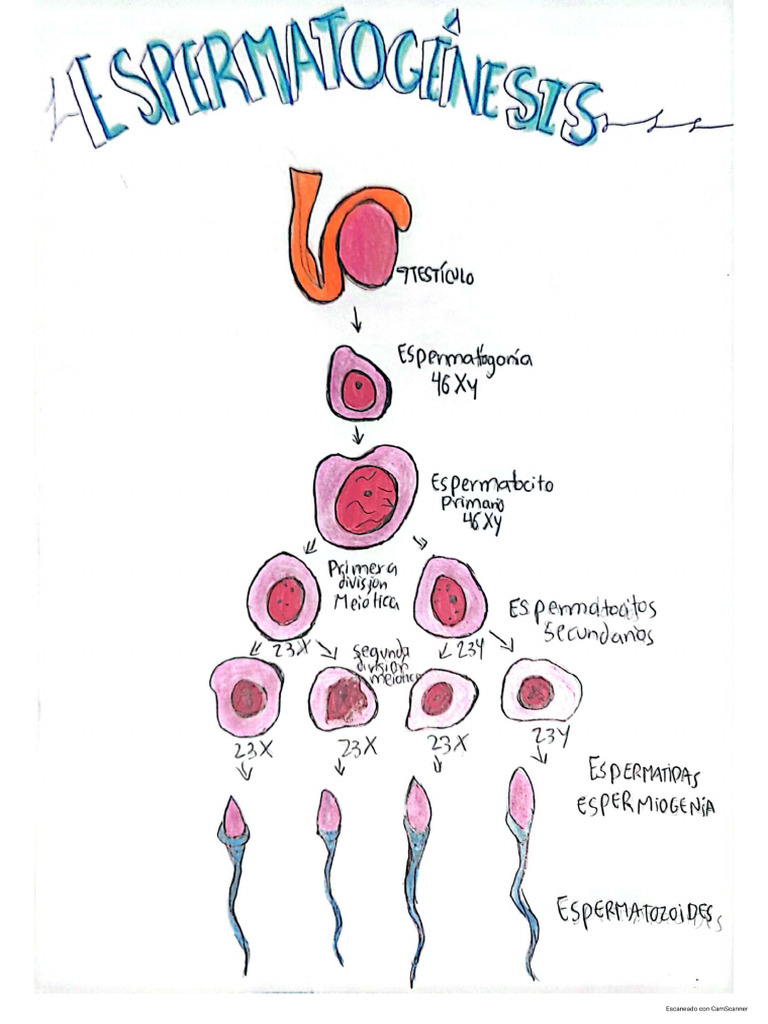 ESPERMATOGÉNESIS
TESTÍCULO
Espermatogonía
46 Xy
Espermatocito
Primario
46 Xy
Primera
división
Meiótica
Espermatocitos
Secundarios
23X
Segunda
división
meiótica
23Y
23X
23X
23X
23Y
ESPERMATIDAS
ESPERMIOGENÍA
ESPERMATOZOIDES
Escaneado con CamScanner